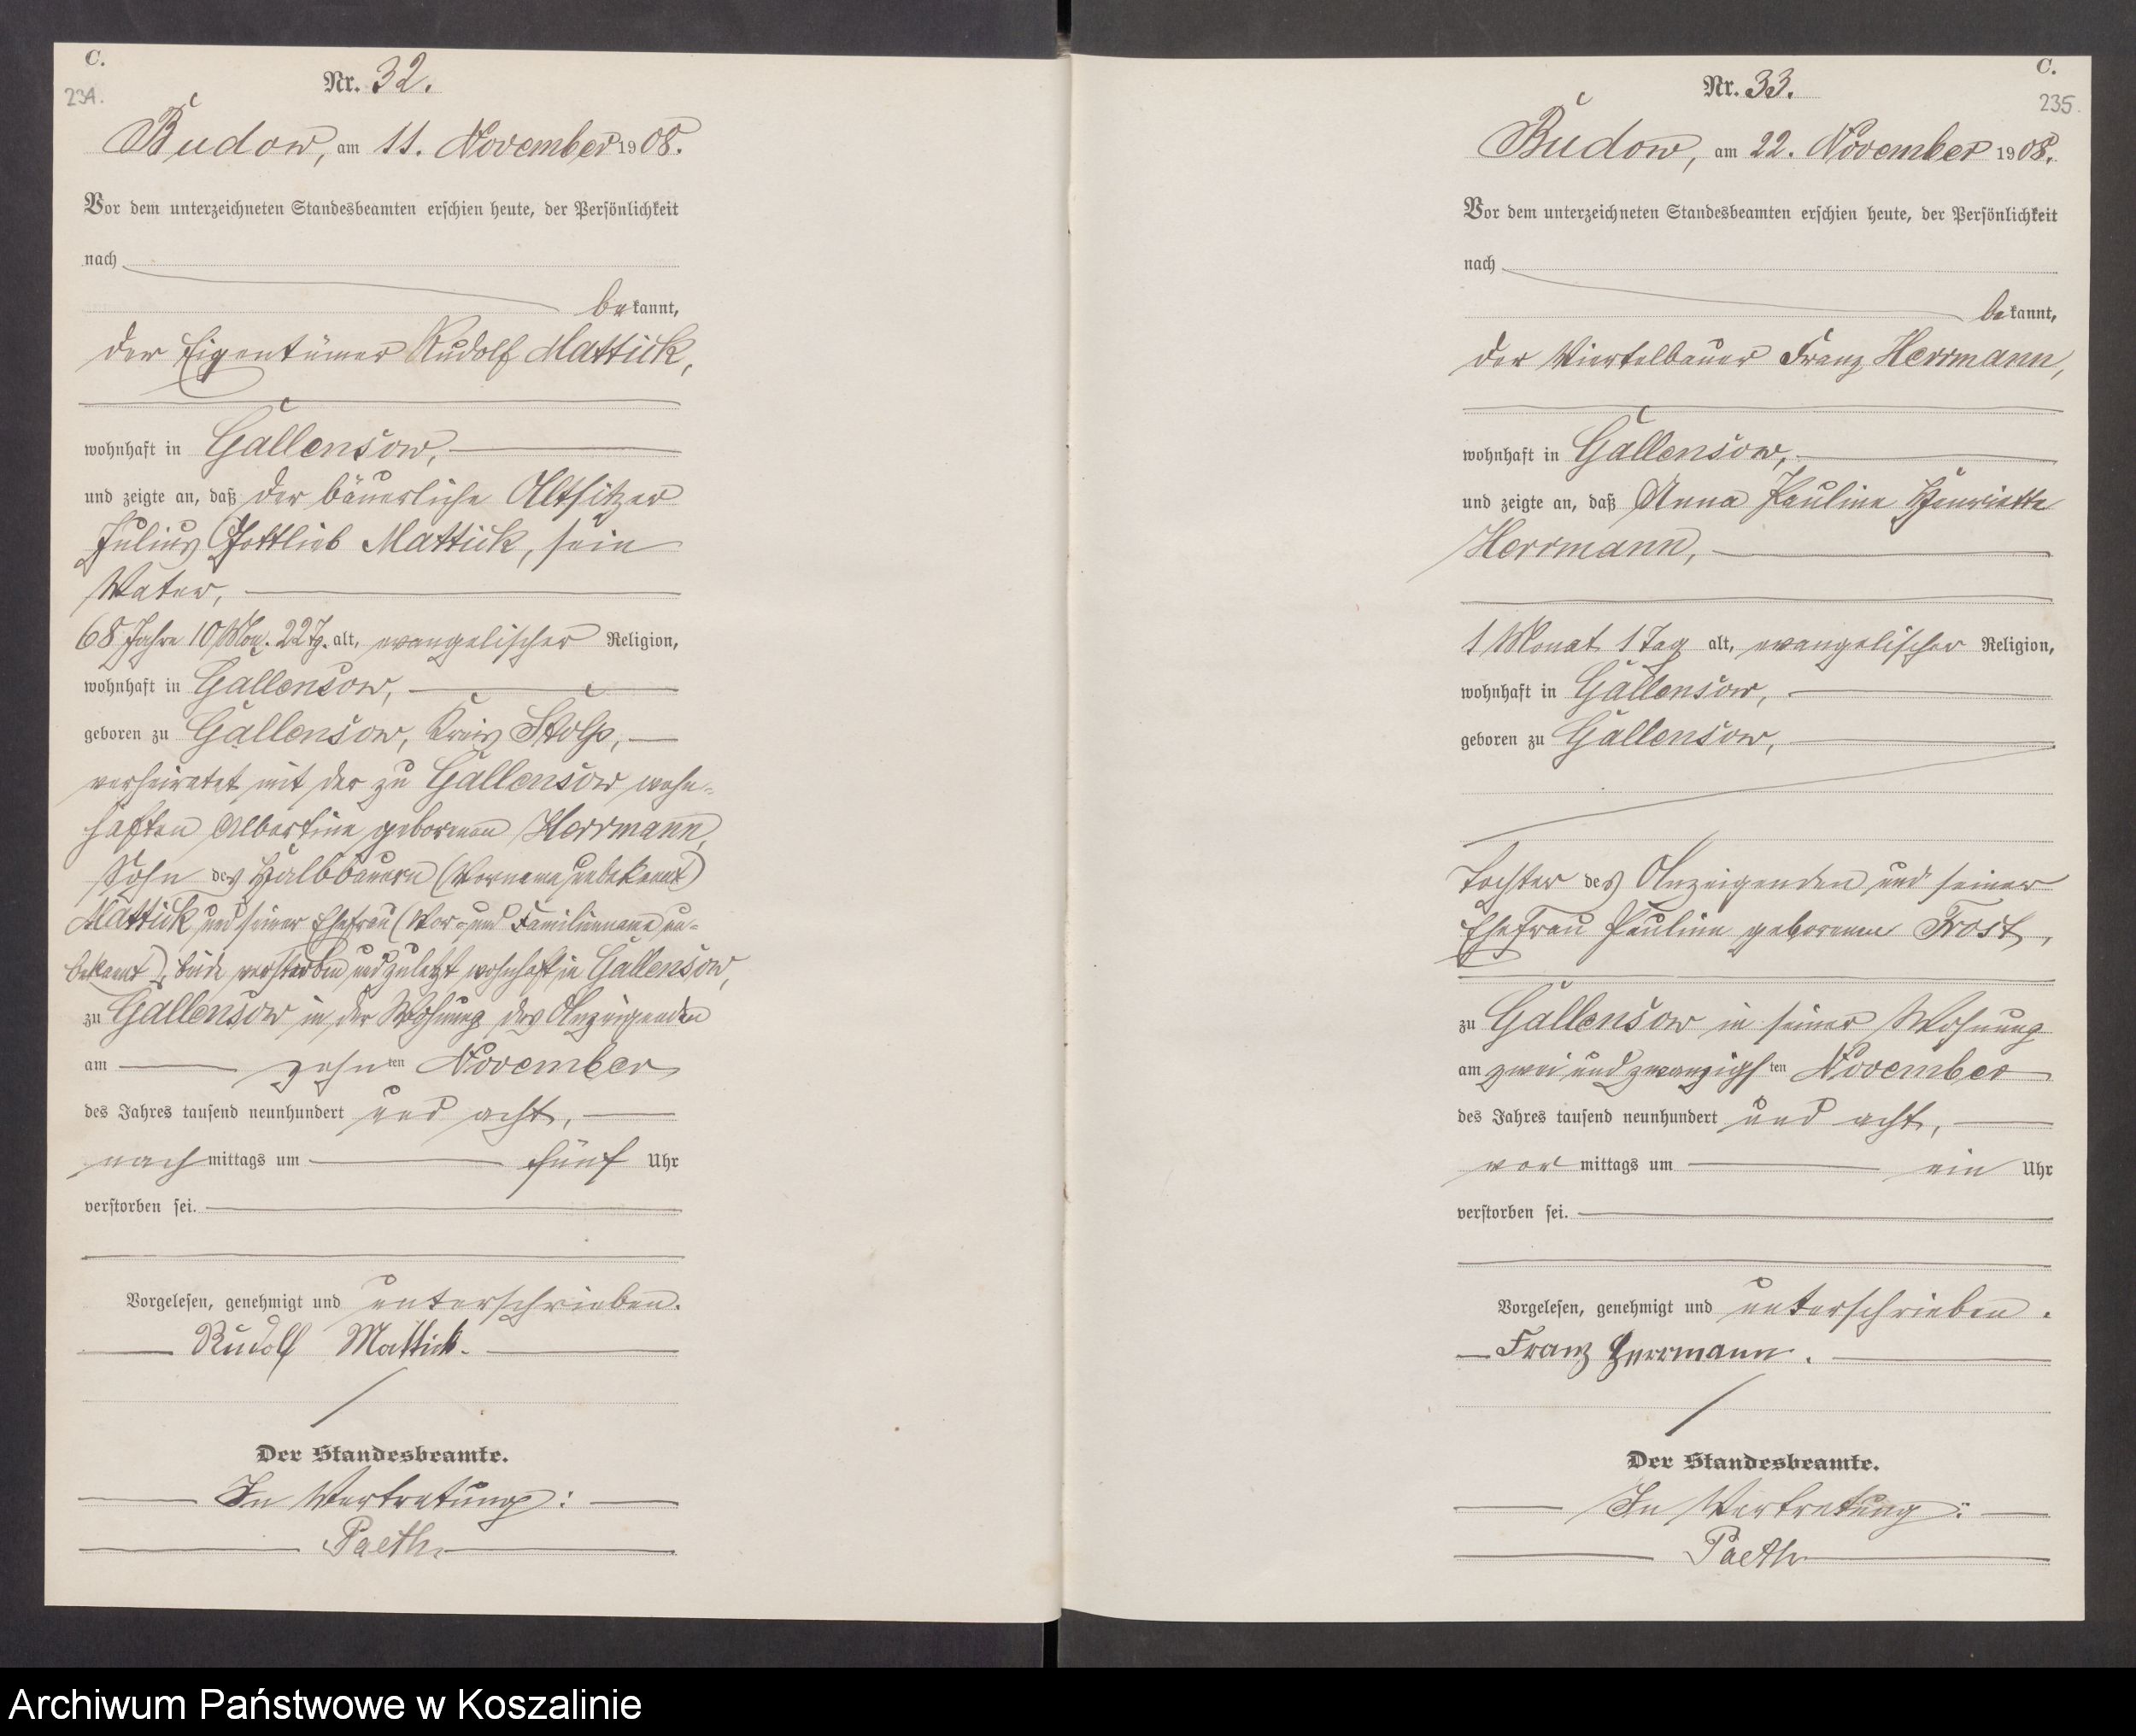 C.
234.
Nr. 32.
Budow, am 11. November 1908.
Vor dem unterzeichneten Standesbeamten erschien heute, der Persönlichkeit
nach
bekannt,
der Eigentümer Rudolf Mattick,
wohnhaft in Gallensow,
und zeigte an, daß der bäuerliche Altsitzer
Julius Gottlieb Mattick, sein
Vater,
68 Jahre 10 Mon. 22 Tg. alt, evangelischer Religion,
wohnhaft in Gallensow,
geboren zu Gallensow, Kreis Stolp,
verheiratet mit der zu Gallensow wohn-
haften Albertine geborenen Herrmann,
Sohn des Halbbauern (Vorname unbekannt)
Mattick und seiner Ehefrau (Vor- und Familienname un-
bekannt), beide verstorben und zuletzt wohnhaft in Gallensow,
zu Gallensow in der Wohnung des Anzeigenden
am zehnten November
des Jahres tausend neunhundert und acht,
nachmittags um fünf Uhr
verstorben sei.
Vorgelesen, genehmigt und unterschrieben.
Rudolf Mattick.
Der Standesbeamte.
In Vertretung:
Paeth
C.
235.
Nr. 33.
Budow, am 22. November 1908.
Vor dem unterzeichneten Standesbeamten erschien heute, der Persönlichkeit
nach
bekannt,
der Viertelbauer Franz Herrmann,
wohnhaft in Gallensow,
und zeigte an, daß Anna Pauline Henriette
Herrmann,
1 Monat 1 Tag alt, evangelischer Religion,
wohnhaft in Gallensow,
geboren zu Gallensow,
Tochter des Anzeigenden und seiner
Ehefrau Pauline geborenen Trost,
zu Gallensow in seiner Wohnung
am zwei und zwanzigsten November
des Jahres tausend neunhundert und acht,
vormittags um ein Uhr
verstorben sei.
Vorgelesen, genehmigt und unterschrieben.
Franz Herrmann.
Der Standesbeamte.
In Vertretung:
Paeth
Archiwum Państwowe w Koszalinie